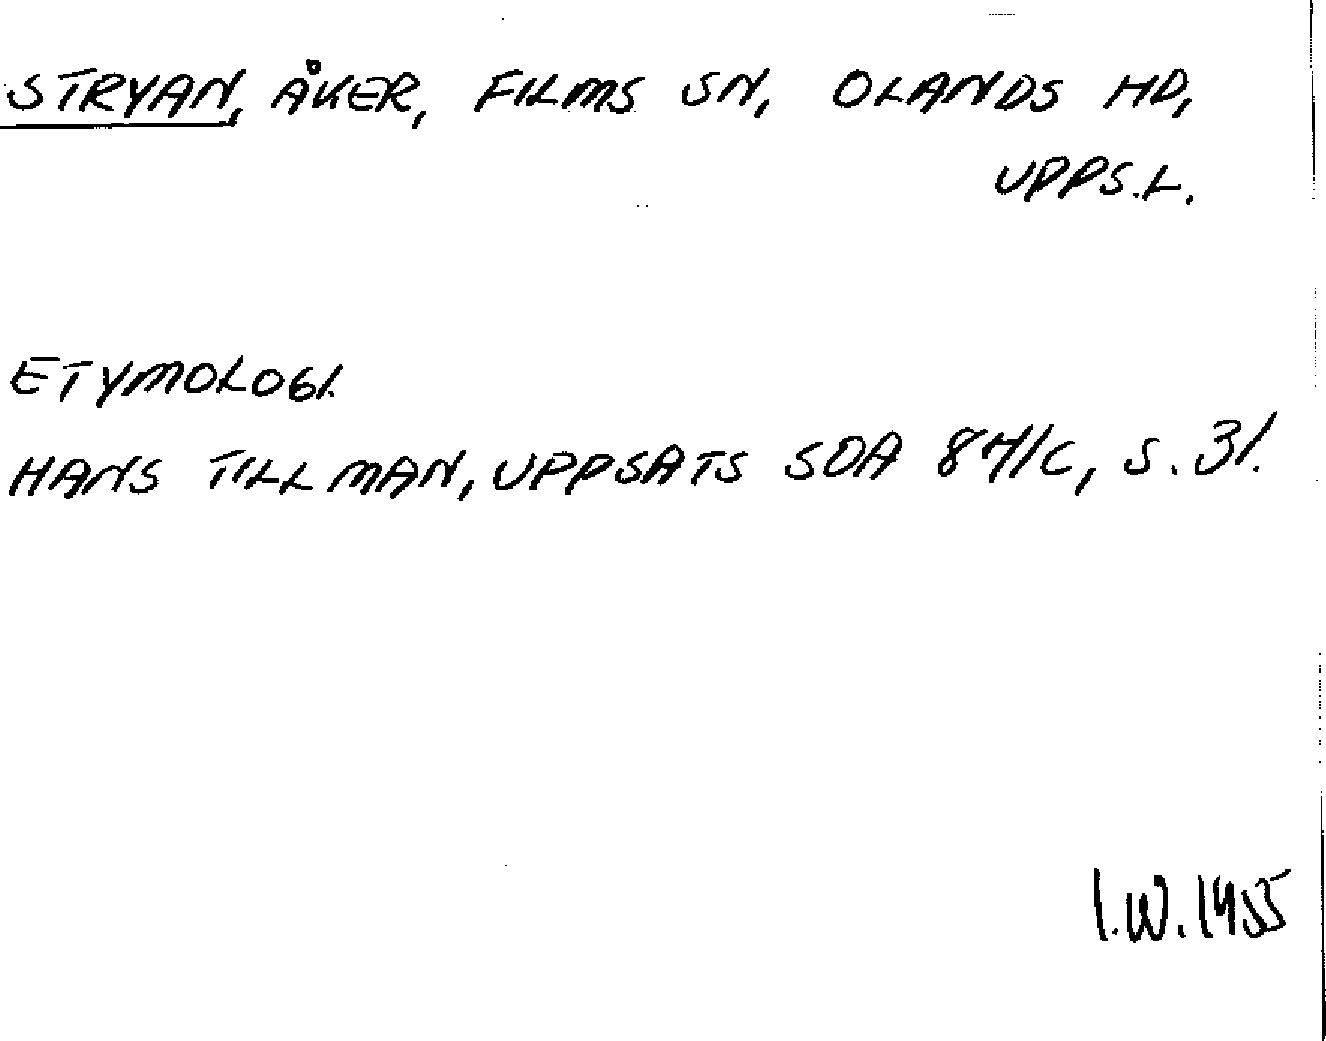 STRYAN, ÅKER, FILMS SN, OLANDS HD,
UPPS.L.
ETYMOLOGI.
HANS TILLMAN, UPPSATS SOA 84/C, S. 31.
I.W. 1955